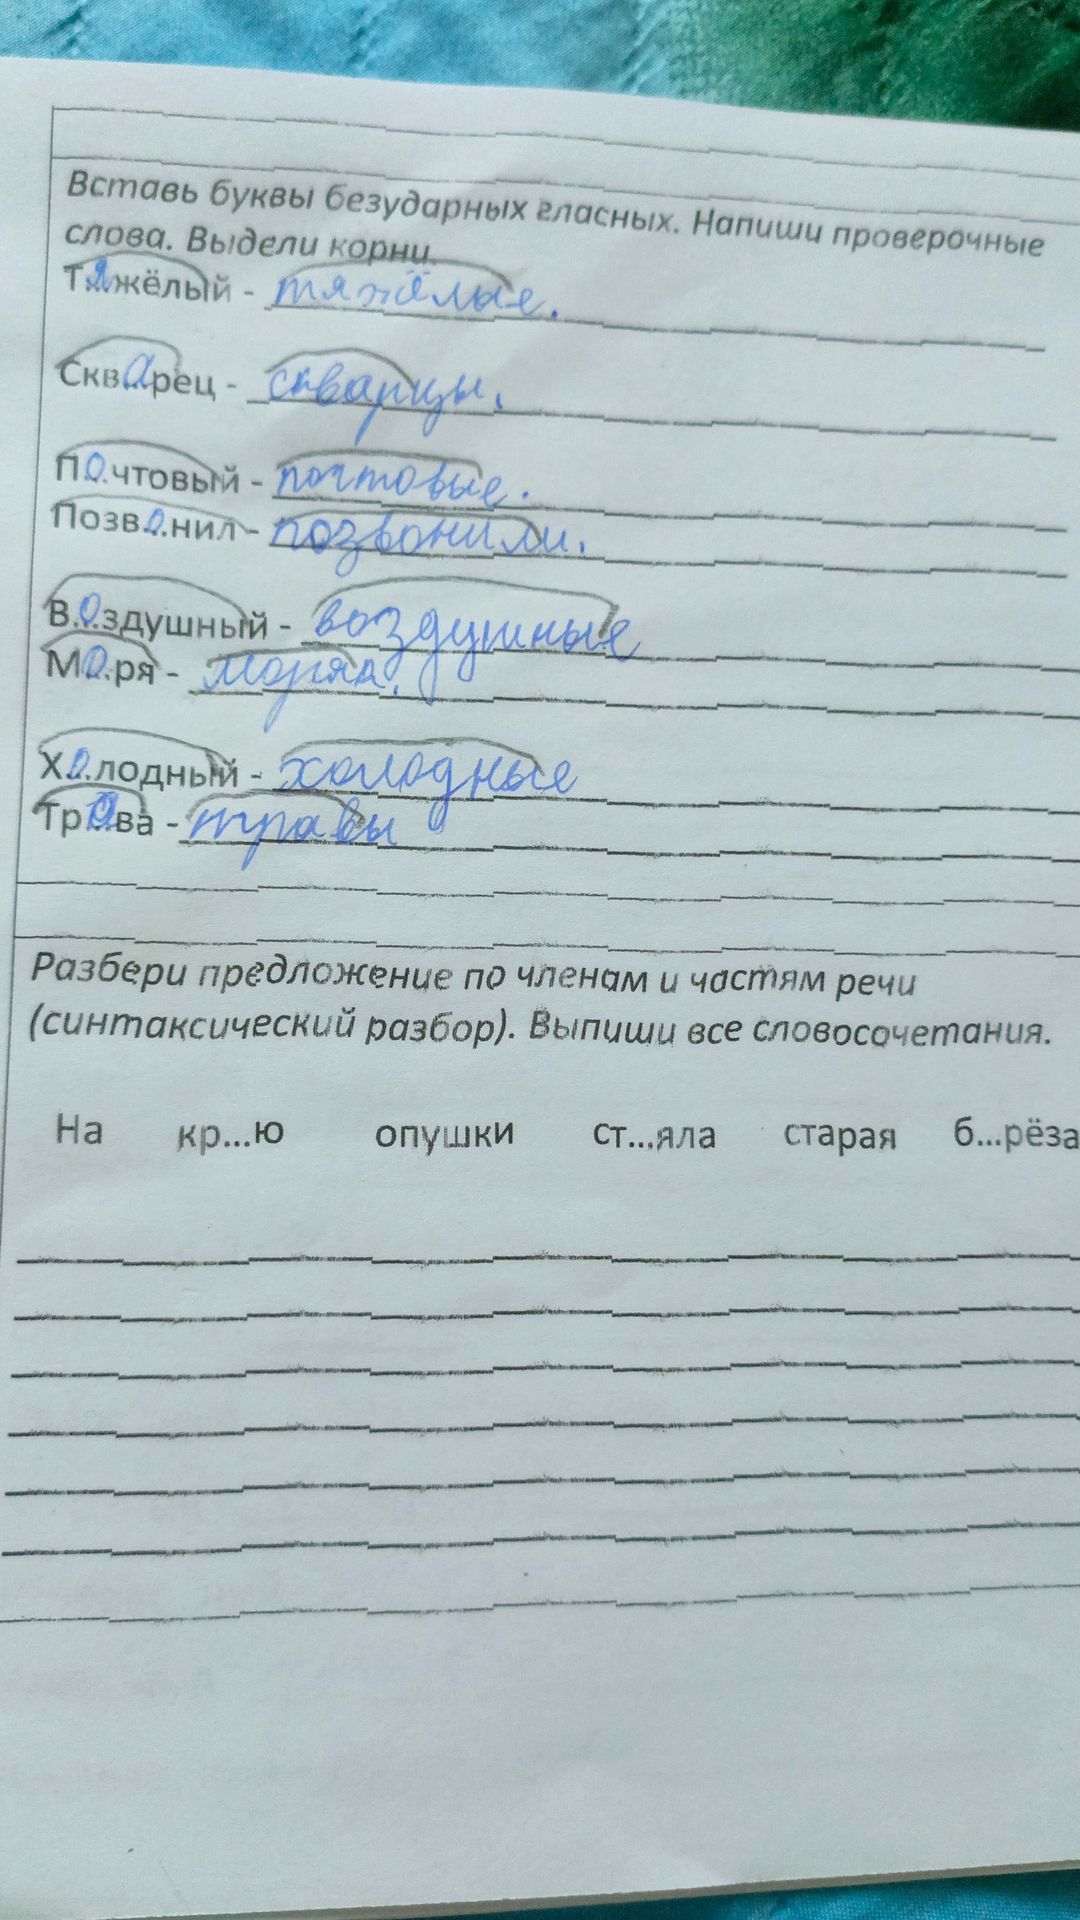 Вставь буквы безударных гласных. Напиши проверочные
слова. Выдели корни.
Тяжёлый - тяжёлые.
Скв.а.рец - скварцы.
П.о.чтовый - почтовые.
Позв.о.нил - позвонили.
В.о.здушный - воздушные
М.о.ря - моряк.
Х.о.лодный - холодные
Трава - травы
Разбери предложение по членам и частям речи
(синтаксический разбор). Выпиши все словосочетания.
На кр...ю опушки ст...яла старая б...рёза